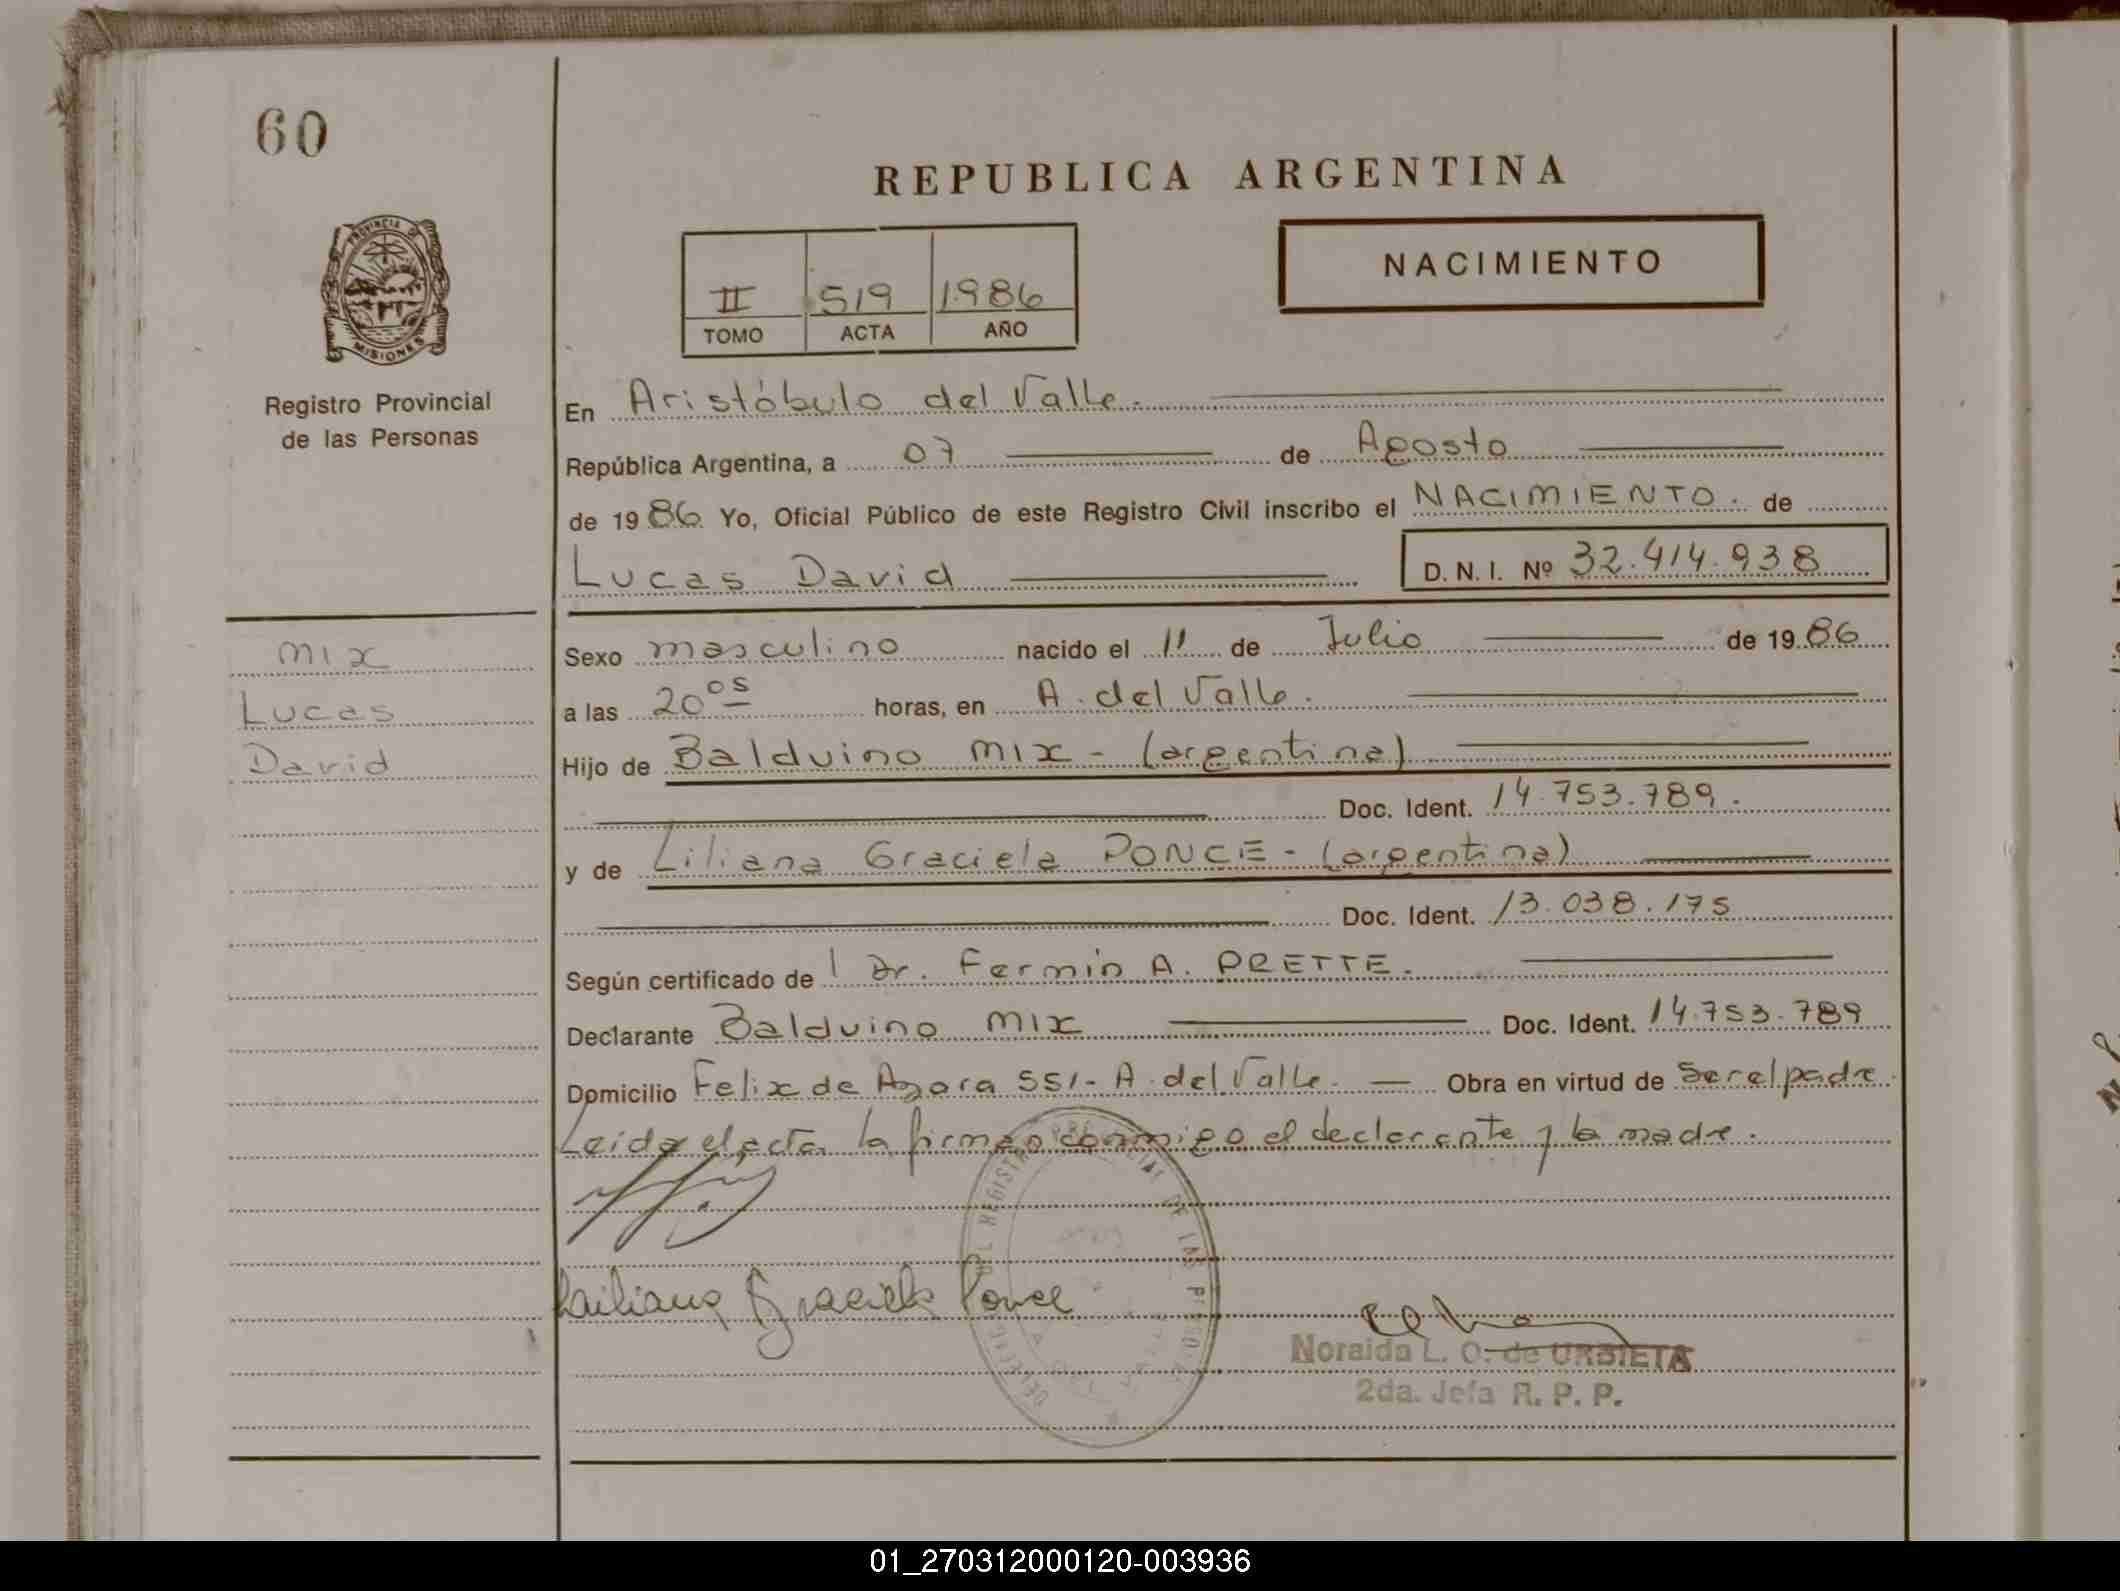 60
REPUBLICA ARGENTINA
PROVINCIA DE
MISIONES
II 519 1986
TOMO ACTA AÑO
NACIMIENTO
Registro Provincial
de las Personas
En Aristóbulo del Valle.
República Argentina, a 07 de Agosto
de 1986 Yo, Oficial Público de este Registro Civil inscribo el NACIMIENTO. de
Lucas David D. N. I. Nº 32.414.938
MIX
Lucas
David
Sexo masculino nacido el 11 de Julio de 1986
a las 20 05 horas, en A. del Valle.
Hijo de Balduino MIX - (argentina)
Doc. Ident. 14.753.789.
y de Liliana Graciela PONCE - (argentina)
Doc. Ident. 13.038.175
Según certificado de l Dr. Fermin A. PRETTE.
Declarante Balduino MIX Doc. Ident. 14.753.789
Domicilio Felix de Azara 551- A. del Valle. — Obra en virtud de Ser el padre
Leida el acta la firman conmigo el declarante y la madre.
DEL REGISTRO PROVINCIAL DE LAS PERSONAS
Liliana Graciela Ponce
Noraida L. O. de URBIETA
2da. Jefa R. P. P.
01_270312000120-003936